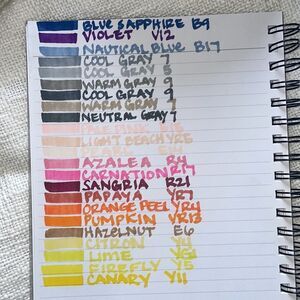 BLUE SAPPHIRE B9
VIOLET V12
NAUTICAL BLUE B17
COOL GRAY 7
COOL GRAY 5
WARM GRAY 9
COOL GRAY 9
WARM GRAY 7
NEUTRAL GRAY 7
PALE PINK
LIGHT BEACH YR5
AZALEA R4
CARNATION R17
SANGRIA R21
PAPAYA YR7
ORANGE PEEL YR4
PUMPKIN YR13
HAZELNUT E6
CITRON
LIME
FIREFLY Y5
CANARY Y11